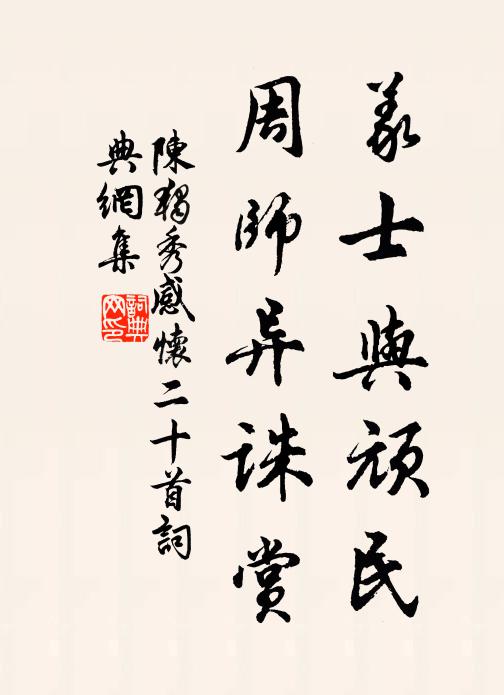 義士與頑民
周師异誅賞
陳獨秀感懷二十首詞
典網集
詞典網印